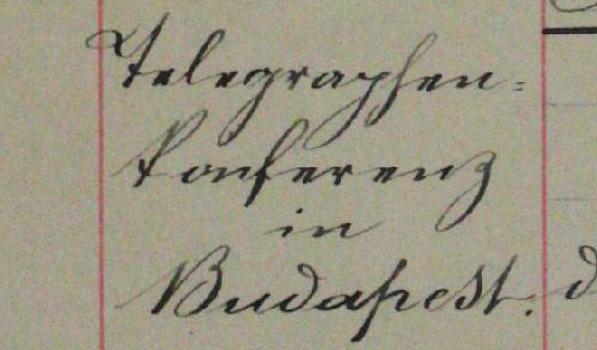 Telegraphen=
konferenz
in
Budapest.